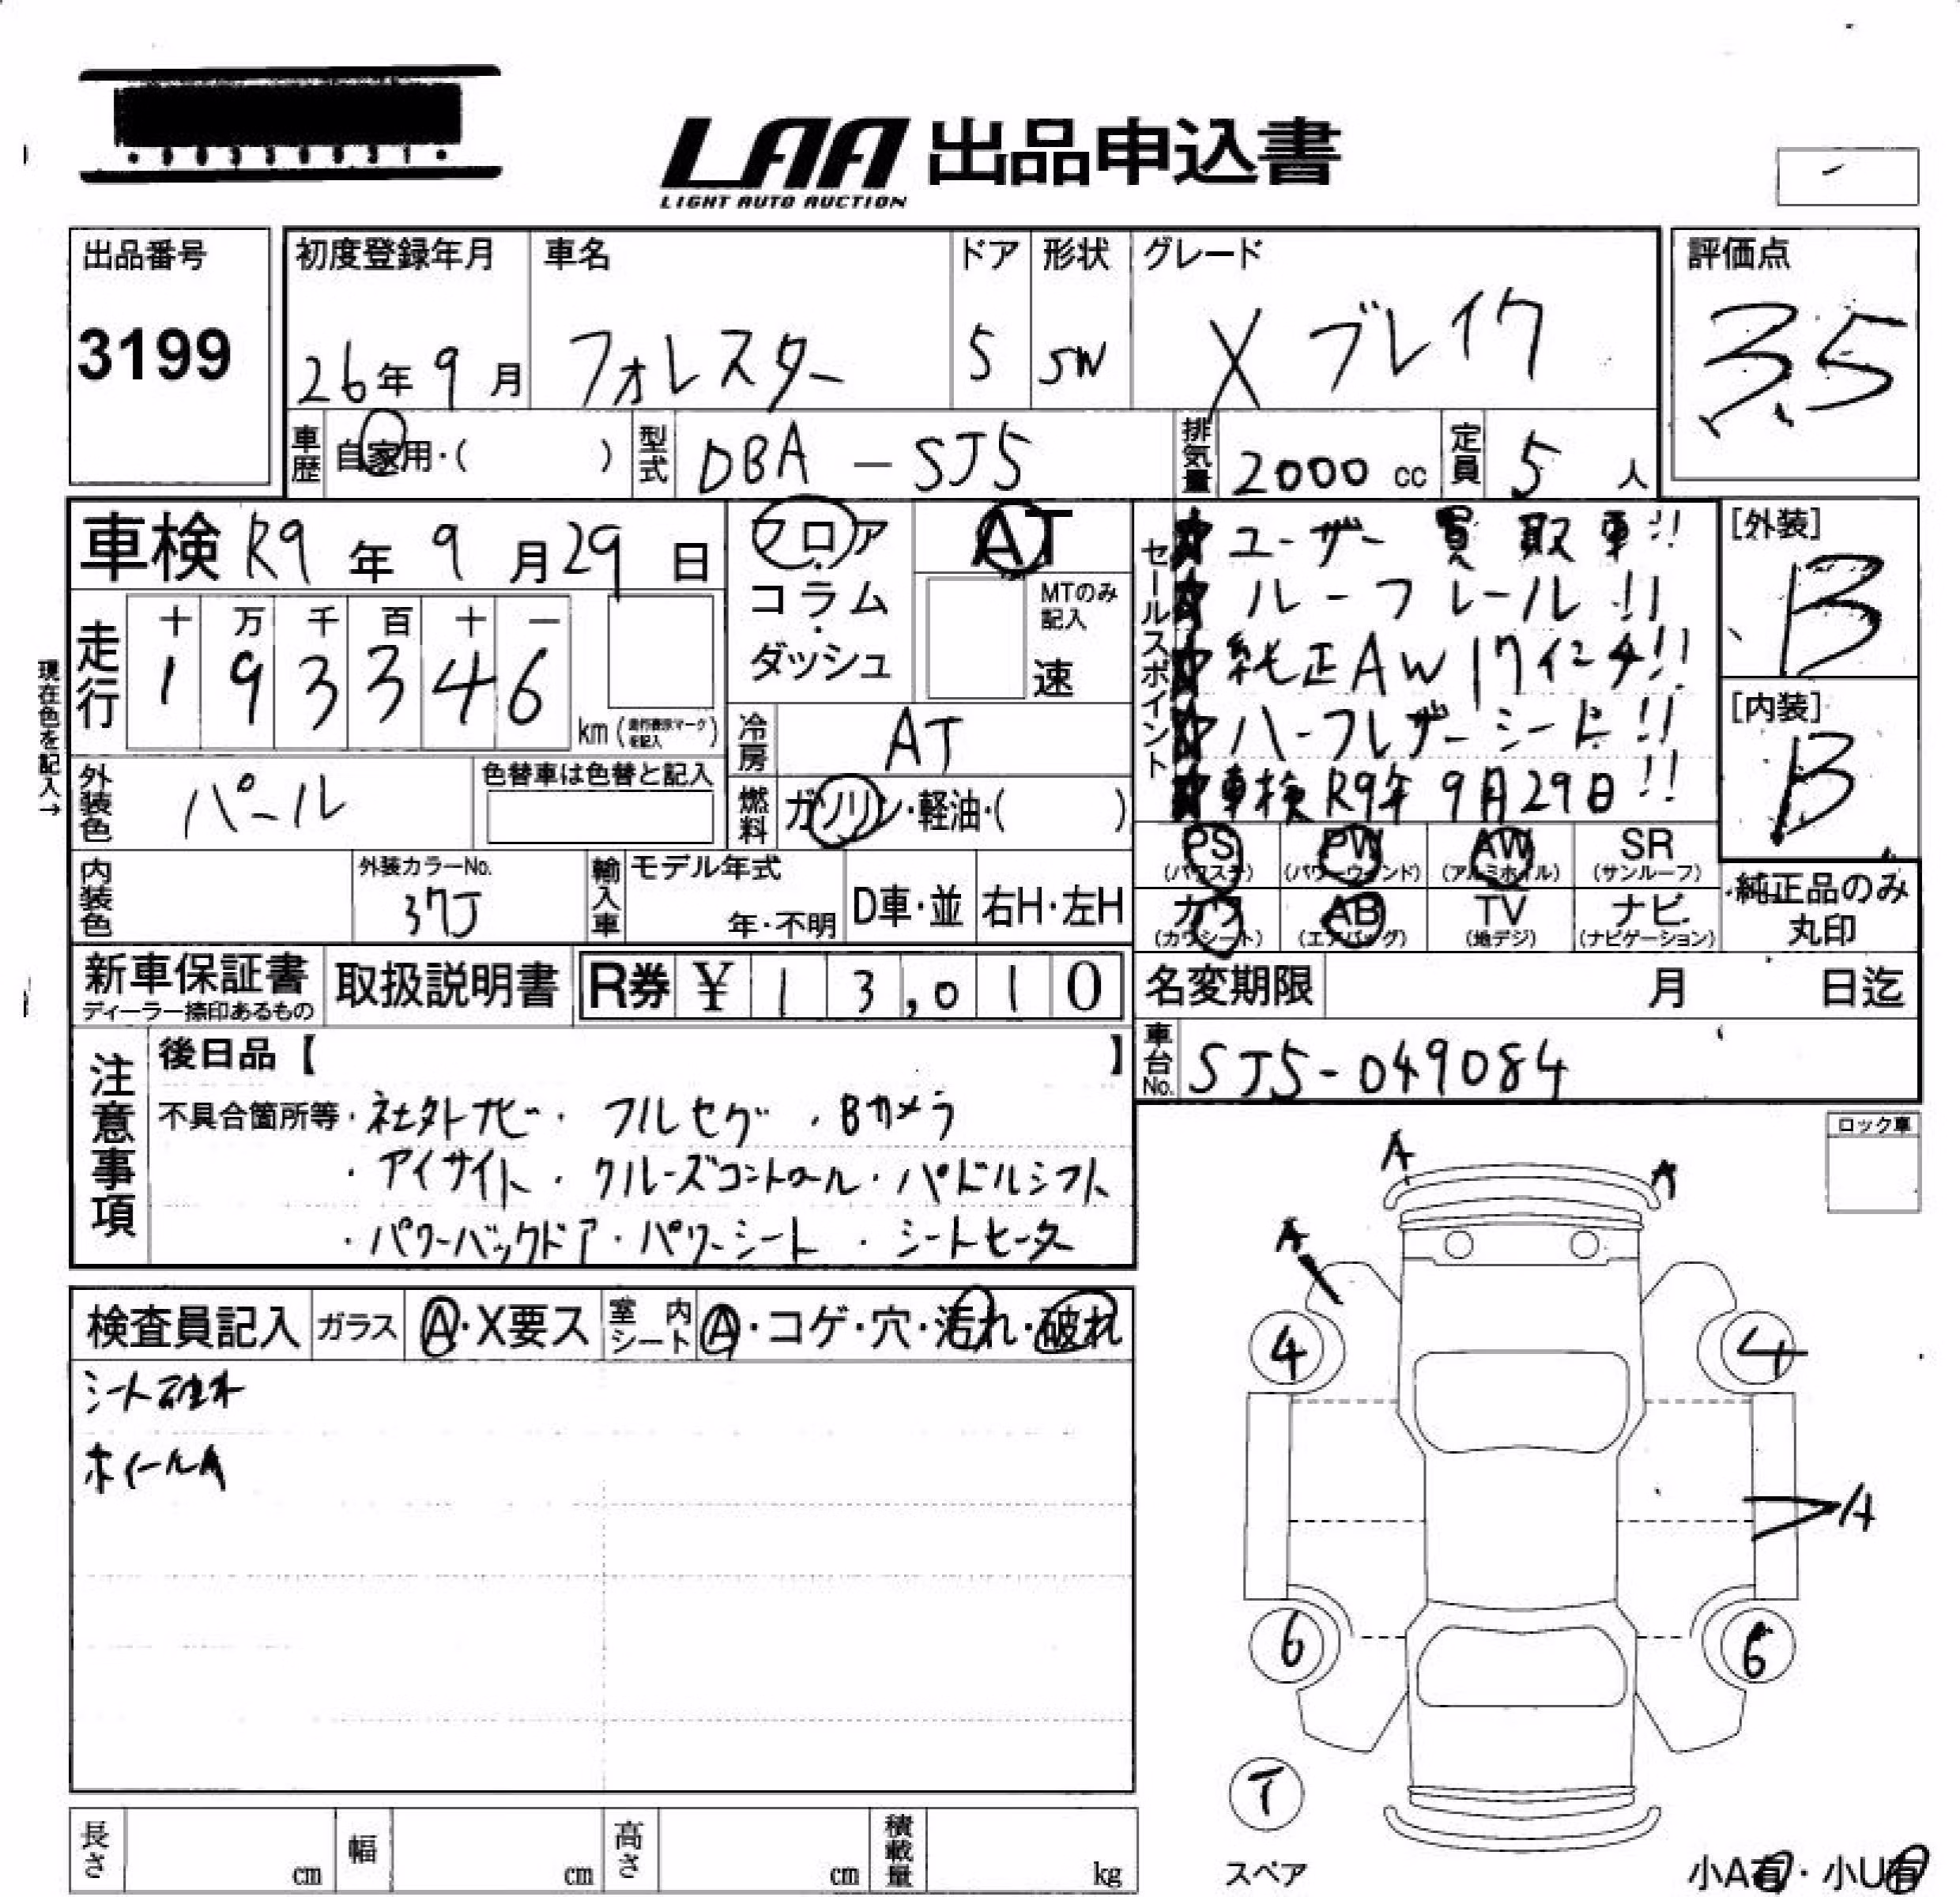 LAA 出品申込書
LIGHT AUTO AUCTION
出品番号
3199
初度登録年月
26年9月
車名
フォレスター
ドア
5
形状
SW
グレード
Xブレイク
評価点
3.5
車歴
自家用・( )
型式
DBA-SJ5
排気量
2000 cc
定員
5人
車検 R9年9月29日
フロア・コラム・ダッシュ
AT
MTのみ記入
速
現在色を記入→
走行
十 万 千 百 十 一
1 9 3 3 4 6
km (走行表示マークを記入)
冷房
AT
外装色
パール
色替車は色替と記入
燃料
ガソリン・軽油・( )
セールスポイント
ユーザー買取車!!
ルーフレール!!
純正AW17インチ!!
ハーフレザーシート!!
車検R9年9月29日!!
[外装]
B
[内装]
B
PS (パワステ)
PW (パワーウィンド)
AW (アルミホイル)
SR (サンルーフ)
カワ (カワシート)
AB (エアバッグ)
TV (地デジ)
ナビ (ナビゲーション)
純正品のみ丸印
内装色
外装カラーNo.
37J
輸入車
モデル年式
年・不明
D車・並
右H・左H
新車保証書
ディーラー捺印あるもの
取扱説明書
R券 ¥13,010
名変期限 月 日迄
車台No.
SJ5-049084
注意事項
後日品【 】
不具合箇所等・社外ナビ・フルセグ・Bカメラ
・アイサイト・クルーズコントロール・パドルシフト
・パワーバックドア・パワーシート・シートヒータ
ロック車
検査員記入
ガラス
A・X要ス
室内シート
A・コゲ・穴・汚れ・破れ
ホイールA
A
A
A
4
4
A
6
6
T
スペア
長さ cm
幅 cm
高さ cm
積載量 kg
小A有・小U有